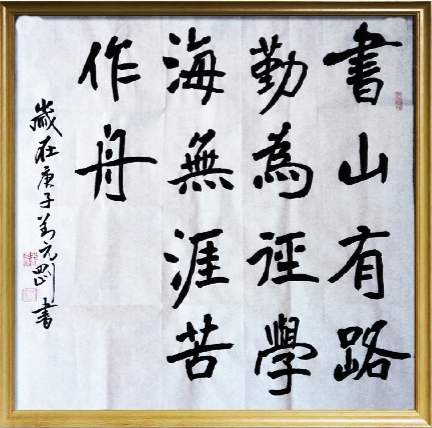 書山有路
勤為誙學
海無涯苦
作舟
歲在庚子 元 書